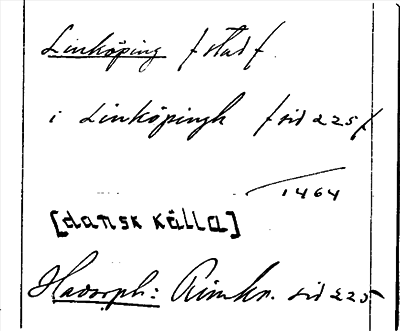 Linköping /stad/.
i Linköpingh /sid 225/
1464
[dansk källa]
Hadorph: Rimkr. sid 225